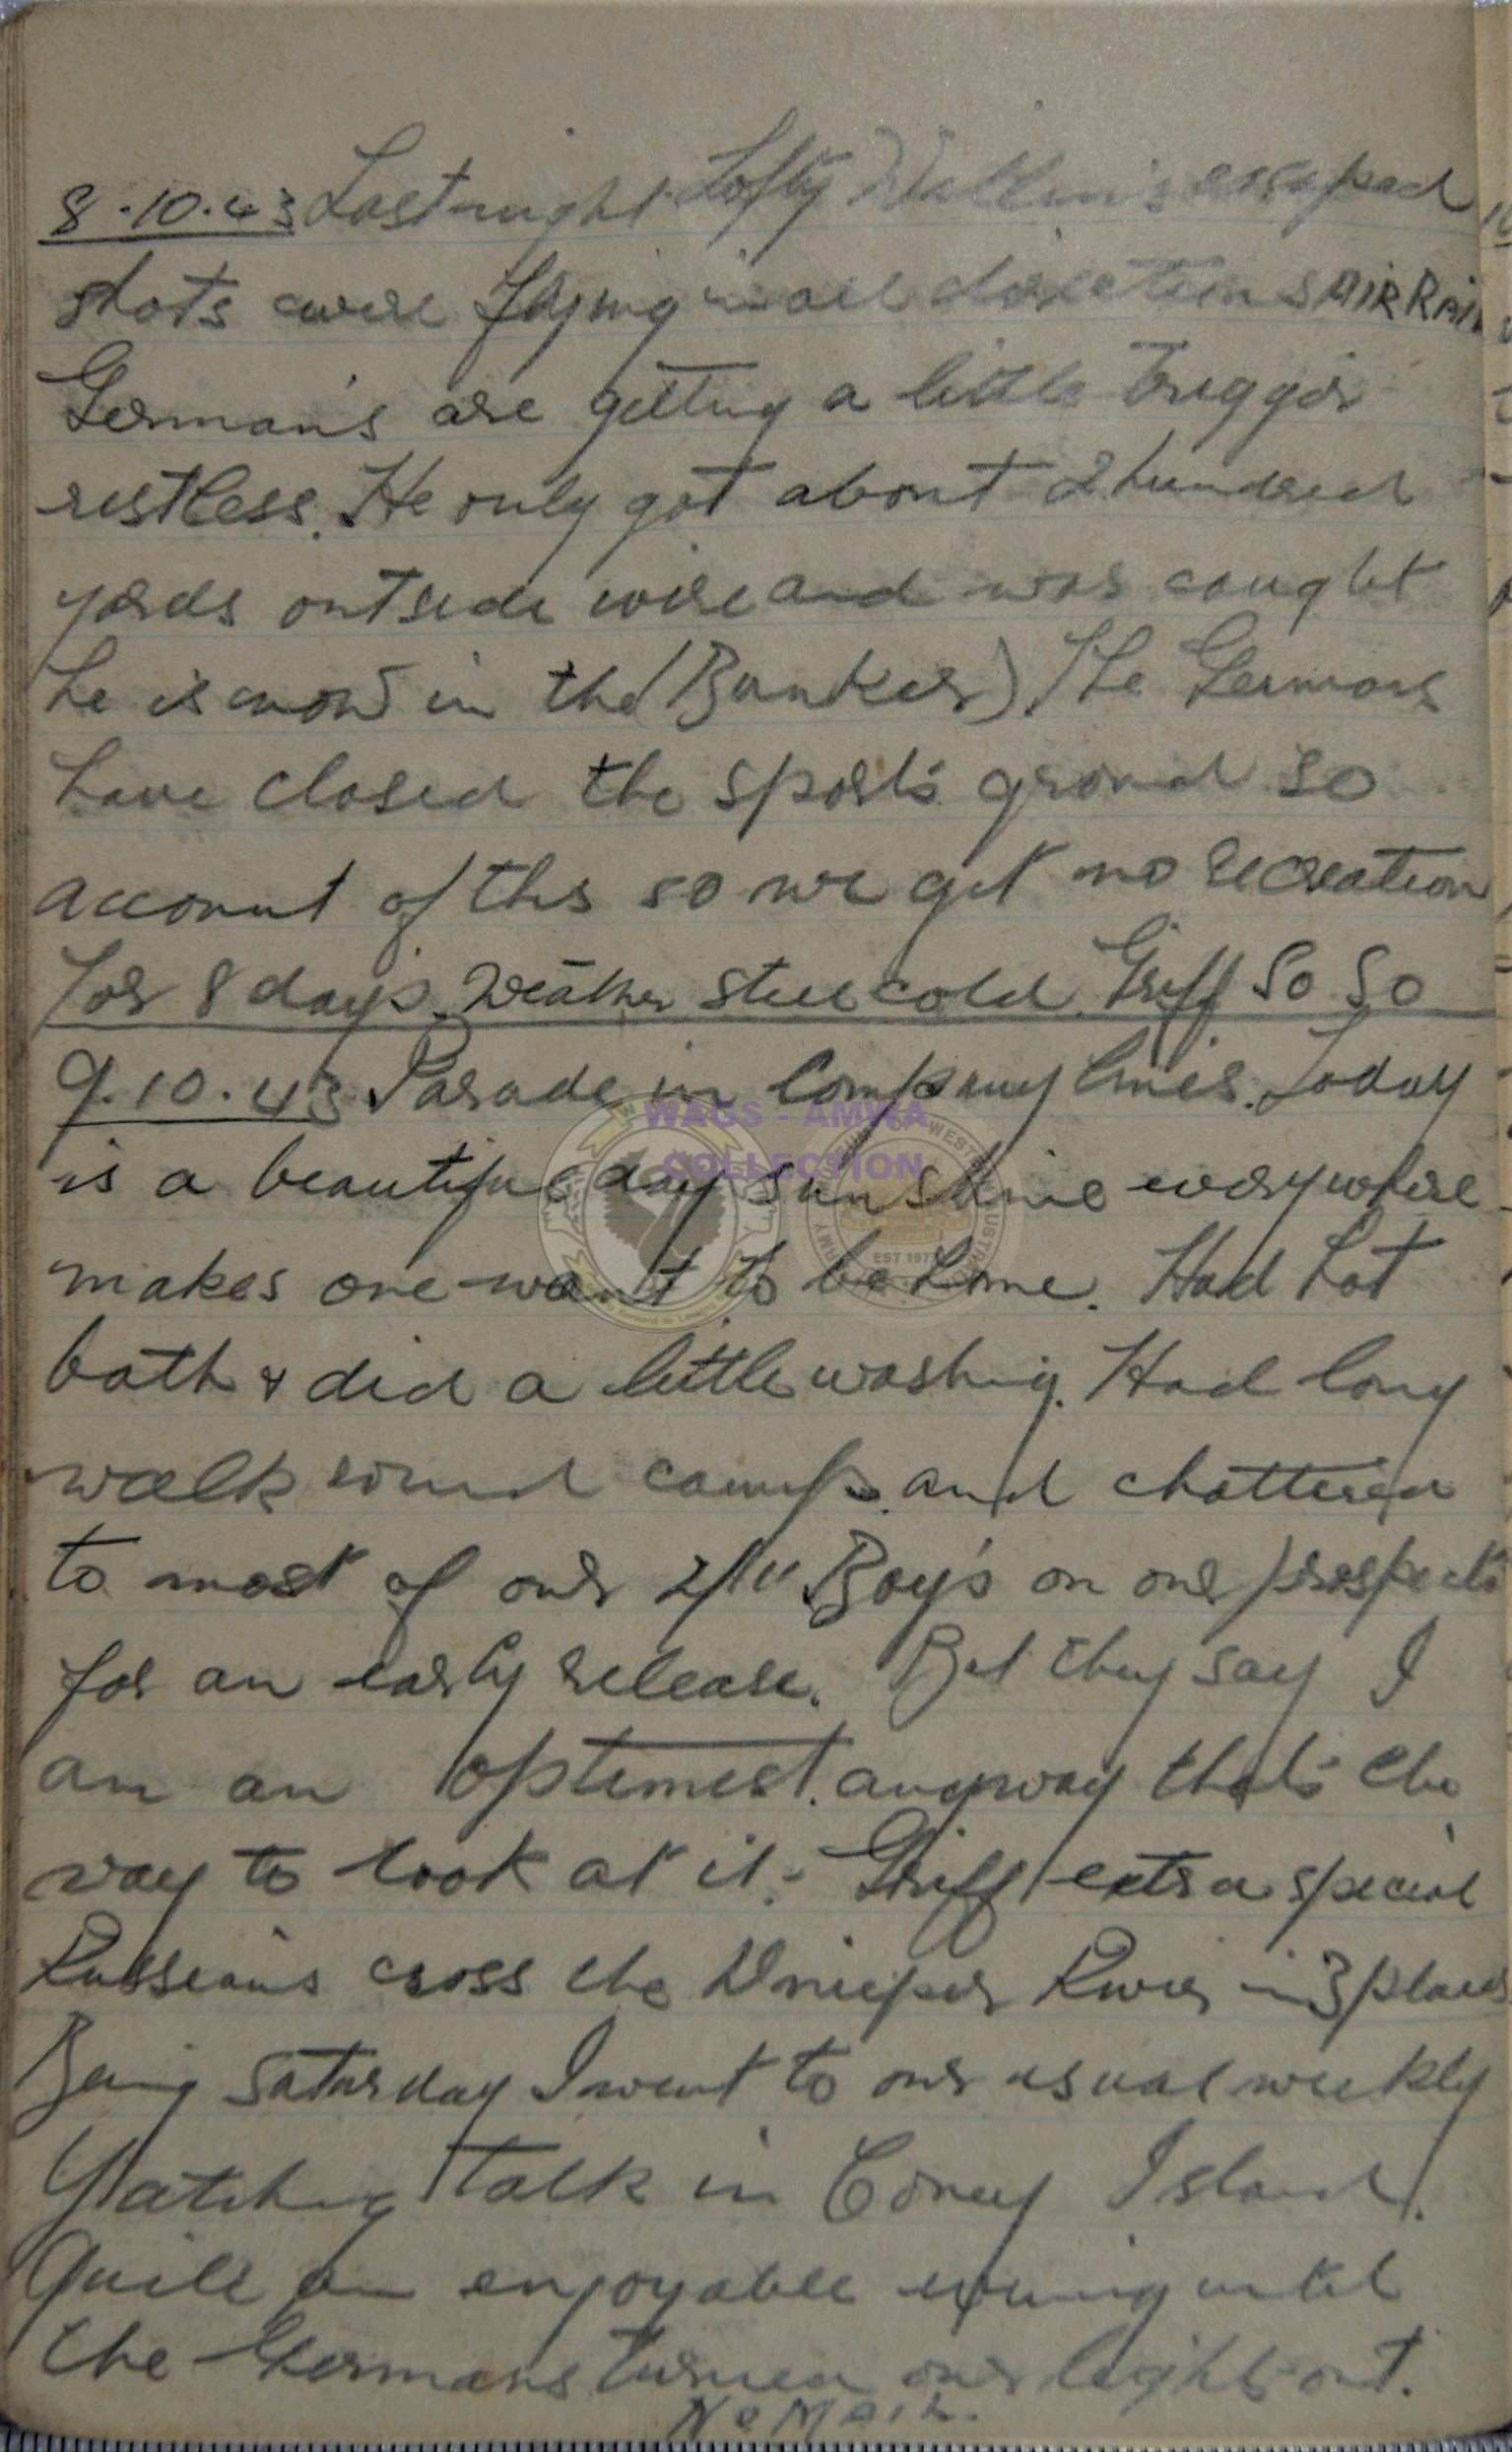 8.10.43 Last night Lofty escaped
shots were flying in all directions AIR RAID
German's are getting a little trigger
restless. He only got about 2 hundred
yards outside wire and was caught
he is now in the (Bunker). The Germans
have closed the sports ground so
account of this so we get no recreation
for 8 day's. Weather still cold. Griff So So
9.10.43 Parade in Company lines. Today
is a beautiful day sunshine everywhere
makes one want to be home. Had hot
bath & did a little washing. Had long
walk round camp. and chattered
to most of our 2/11 Boy's on our prospects
for an early release. But they say I
am an optimest. anyway that's the
way to look at it. Griff extra special
Russians cross the Dnieper River in 3 places
Being Saturday I went to our usual weekly
Yatching talk in Coney Island.
Quite an enjoyable evening until
the Germans turned our lights out.
No MAIL.
WAGS - AMWA
COLLECTION
EST 1977